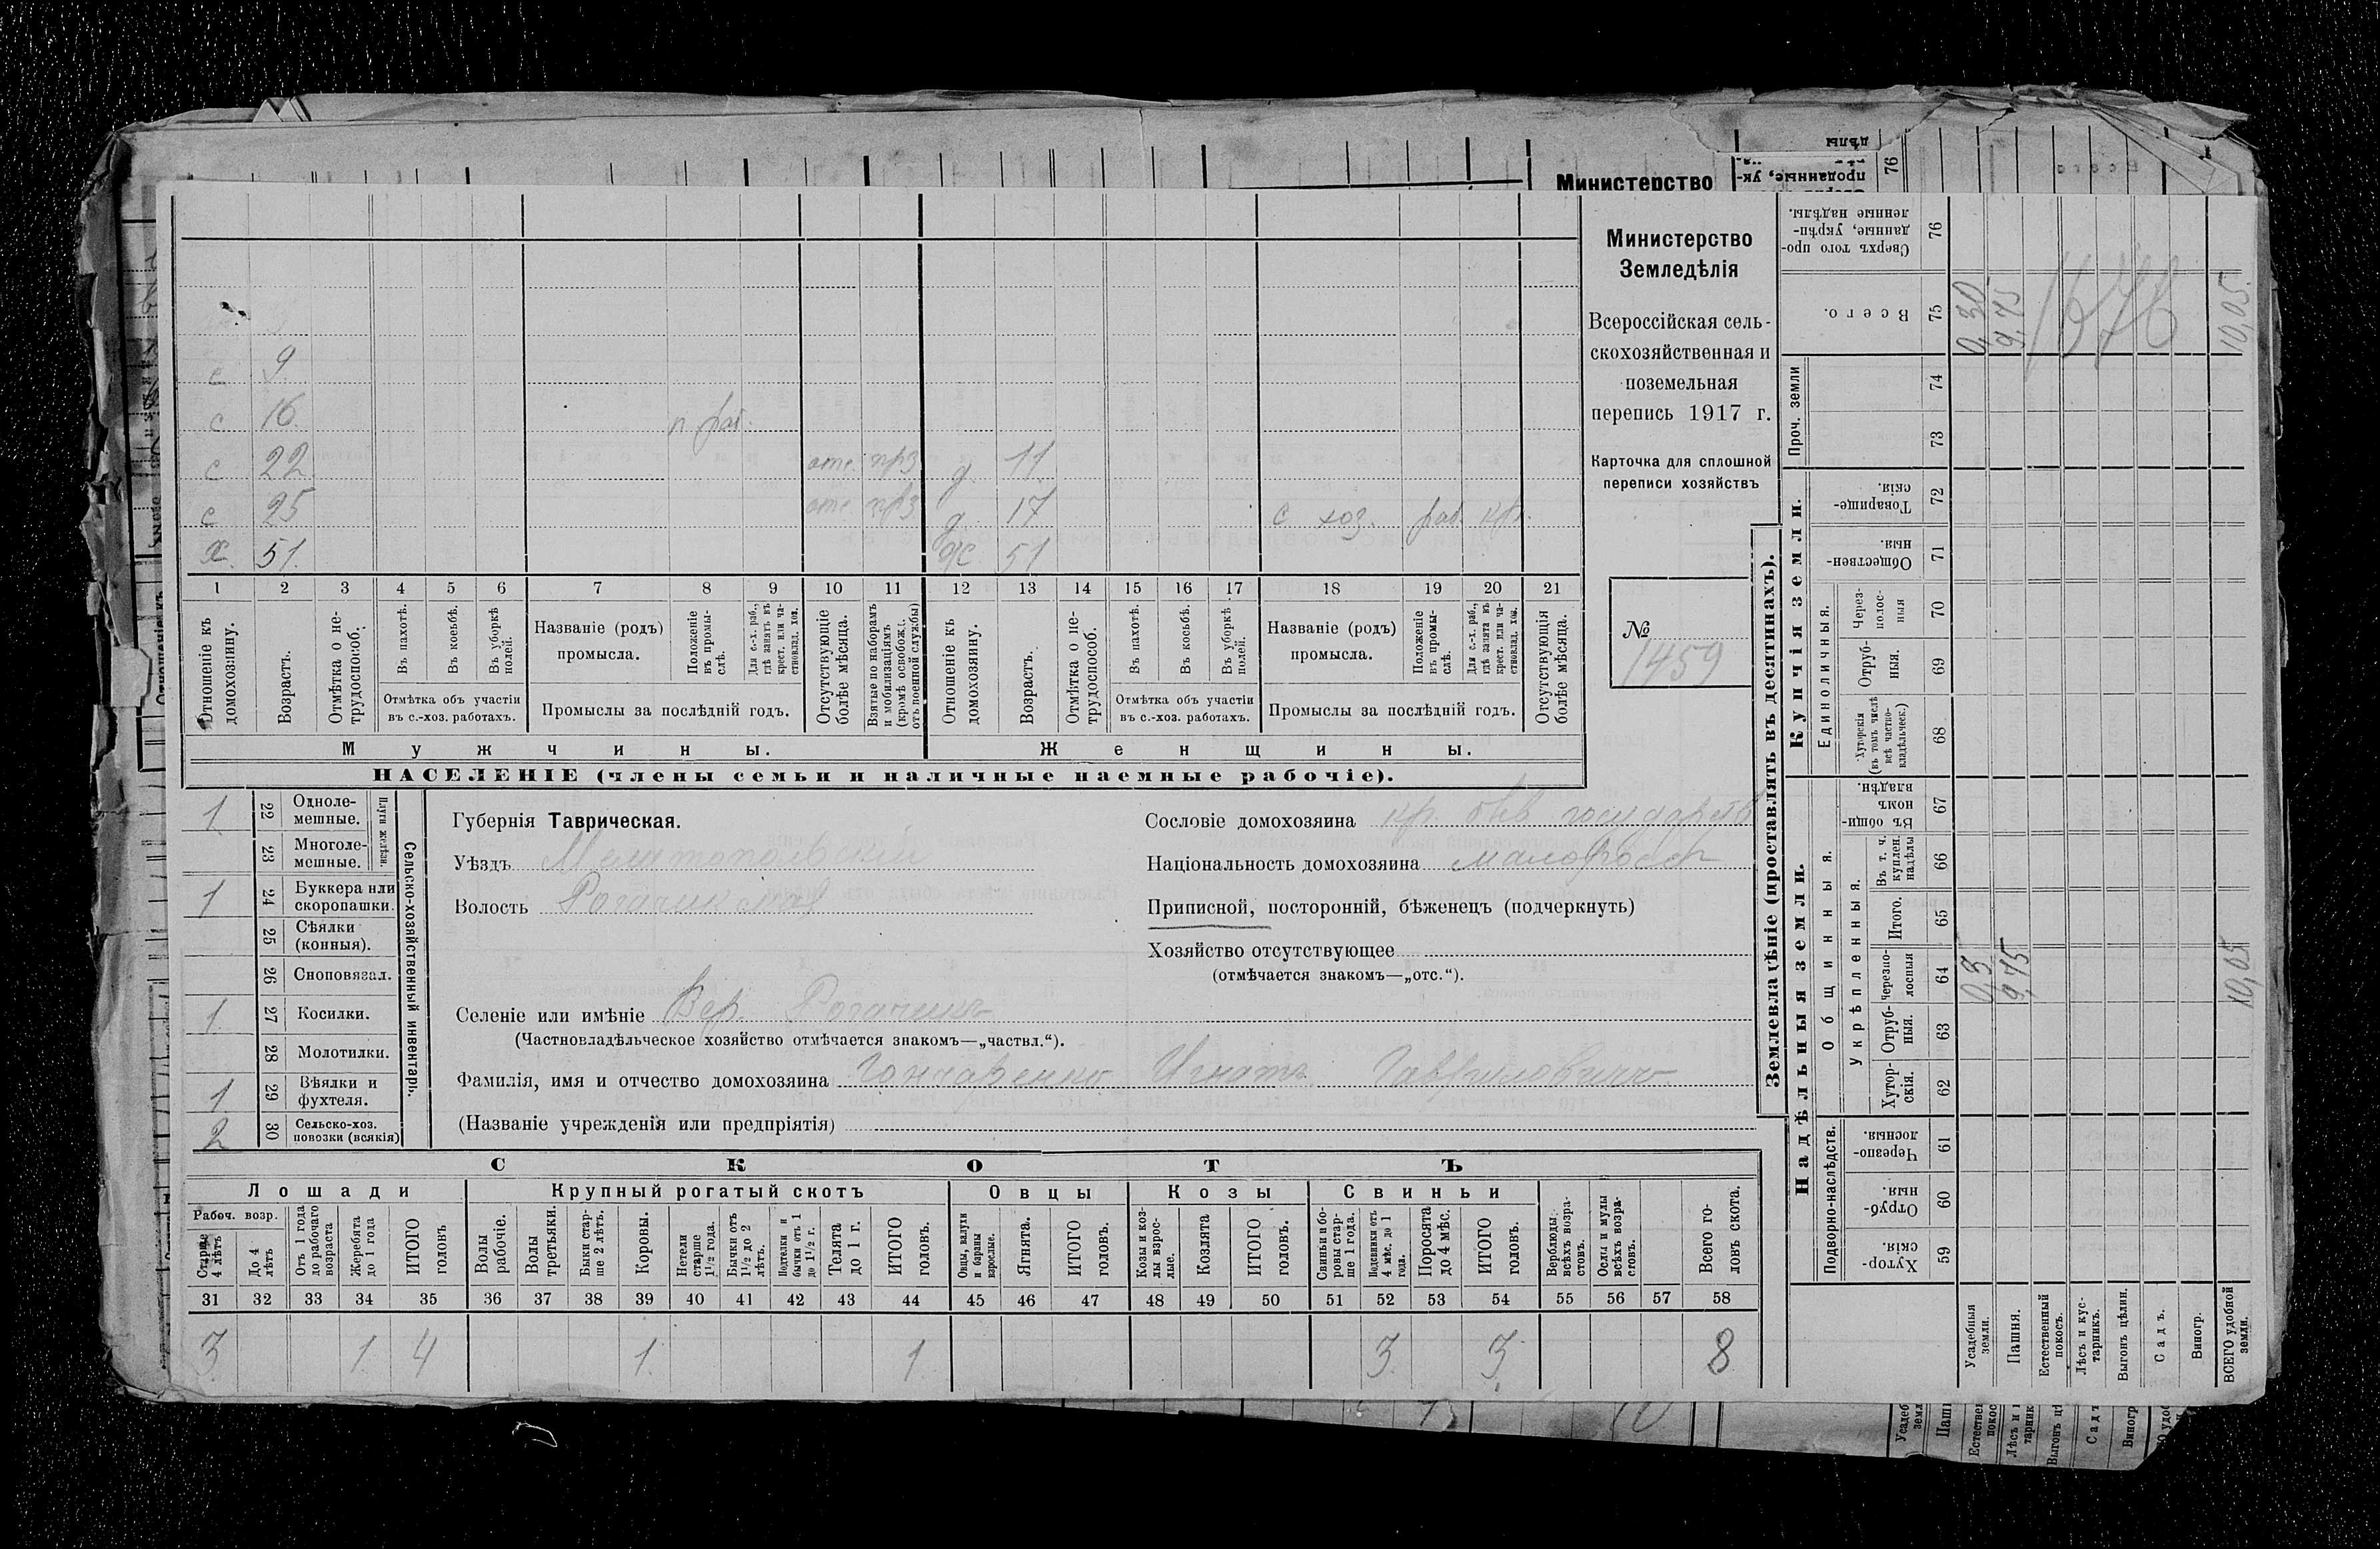 Министерство
Министерство
Земледѣлія
Всероссійская сель-
скохозяйственная и
поземельная
перепись 1917 г.
Карточка для сплошной
переписи хозяйствъ
№
1459
с 9
с 16 п раб.
с 22 отс. прз д 11
с 25 отс. прз д. 17 с хоз. раб. кр.
х. 51. ж. 51
1 2 3 4 5 6 7 8 9 10 11 12 13 14 15 16 17 18 19 20 21
Отношеніе къ домохозяину.
Возрастъ.
Отмѣтка о не-трудоспособ.
Въ пахотѣ.
Въ косьбѣ.
Въ уборкѣ полей.
Отмѣтка объ участіи въ с.-хоз. работахъ.
Названіе (родъ) промысла.
Положеніе въ промы-слѣ.
Для с.-х. раб., гдѣ занятъ въ крест. или ча-стновлад. хоз.
Промыслы за послѣдній годъ.
Отсутствующіе болѣе мѣсяца.
Взятые по наборамъ и мобилизаціямъ (кромѣ освобожд. отъ военной службы)
Отношеніе къ домохозяину.
Возрастъ.
Отмѣтка о не-трудоспособ.
Въ пахотѣ.
Въ косьбѣ.
Въ уборкѣ полей.
Отмѣтка объ участіи въ с.-хоз. работахъ.
Названіе (родъ) промысла.
Положеніе въ промы-слѣ.
Для с.-х. раб., гдѣ занята въ крест. или ча-стновлад. хоз.
Промыслы за послѣдній годъ.
Отсутствующія болѣе мѣсяца.
Мужчины. Женщины.
НАСЕЛЕНІЕ (члены семьи и наличные наемные рабочіе).
Сельско-хозяйственный инвентарь.
Плуги желѣзн.
1 22 Одноле-мешные.
23 Многоле-мешные.
1 24 Буккера или скоропашки.
25 Сѣялки (конныя).
26 Сноповязал.
1 27 Косилки.
28 Молотилки.
1 29 Вѣялки и фухтеля.
2 30 Сельско-хоз. повозки (всякія)
Губернія Таврическая.
Уѣздъ Мелитопольскій
Волость Рогачикская
Селеніе или имѣніе Вер. Рогачикъ
(Частновладѣльческое хозяйство отмѣчается знакомъ—„частвл.“).
Фамилія, имя и отчество домохозяина Гончаренко Игнатъ Гавриловичъ
(Названіе учрежденія или предпріятія)
Сословіе домохозяина кр. быв государств
Національность домохозяина малоросс
Приписной, посторонній, бѣженецъ (подчеркнуть)
Хозяйство отсутствующее
(отмѣчается знакомъ—„отс.“).
СКОТЪ
Лошади Крупный рогатый скотъ Овцы Козы Свиньи
Рабоч. возр.
Старше 4 лѣтъ
До 4 лѣтъ
Отъ 1 года до рабочаго возраста
Жеребята до 1 года
ИТОГО головъ
Волы рабочіе.
Волы третьяки.
Быки стар-ше 2 лѣтъ.
Коровы.
Нетели старше 1½ года.
Бычки отъ 1½ до 2 лѣтъ.
Подтелки и бычки отъ 1 до 1½ г.
Телята до 1 г.
ИТОГО головъ.
Овцы, валухи и бараны взрослые.
Ягнята.
ИТОГО головъ.
Козы и коз-лы взрос-лые.
Козлята
ИТОГО головъ.
Свиньи и бо-ровы стар-ше 1 года.
Подсвинки отъ 4 мѣс. до 1 года.
Поросята до 4 мѣс.
ИТОГО головъ.
Верблюды всѣхъ возра-стовъ.
Ослы и мулы всѣхъ возра-стовъ.
Всего го-ловъ скота.
31 32 33 34 35 36 37 38 39 40 41 42 43 44 45 46 47 48 49 50 51 52 53 54 55 56 57 58
3 1 4 1 1 3 3 8
Землевладѣніе (проставлять въ десятинахъ).
Купчія земли.
Надѣльныя земли.
Сверхъ того про-данные, укрѣп-ленные надѣлы. 76
Всего. 75 0,30 9,75 10,05
1676
Проч. земли 74 73
Товарище-скія. 72
Обществен-ныя. 71
Единоличныя.
Через-полос-ныя 70
Отруб-ныя. 69
Хуторскія (въ томъ числѣ всѣ частно-владѣльческ.) 68
Общинныя.
Въ общин-номъ владѣн. 67
Укрѣпленныя.
Въ т. ч. куплен. надѣлы 66
Итого. 65
Черезпо-лосныя 64 0,3 9,75 10,05
Отруб-ныя. 63
Хутор-скія. 62
Подворно-наслѣдств.
Черезпо-лосныя. 61
Отруб-ныя. 60
Хутор-скія. 59
Усадебныя земли.
Пашня.
Естественный покосъ.
Лѣсъ и кус-тарникъ.
Выгонъ цѣлин.
Садъ.
Виногр.
ВСЕГО удобной земли.